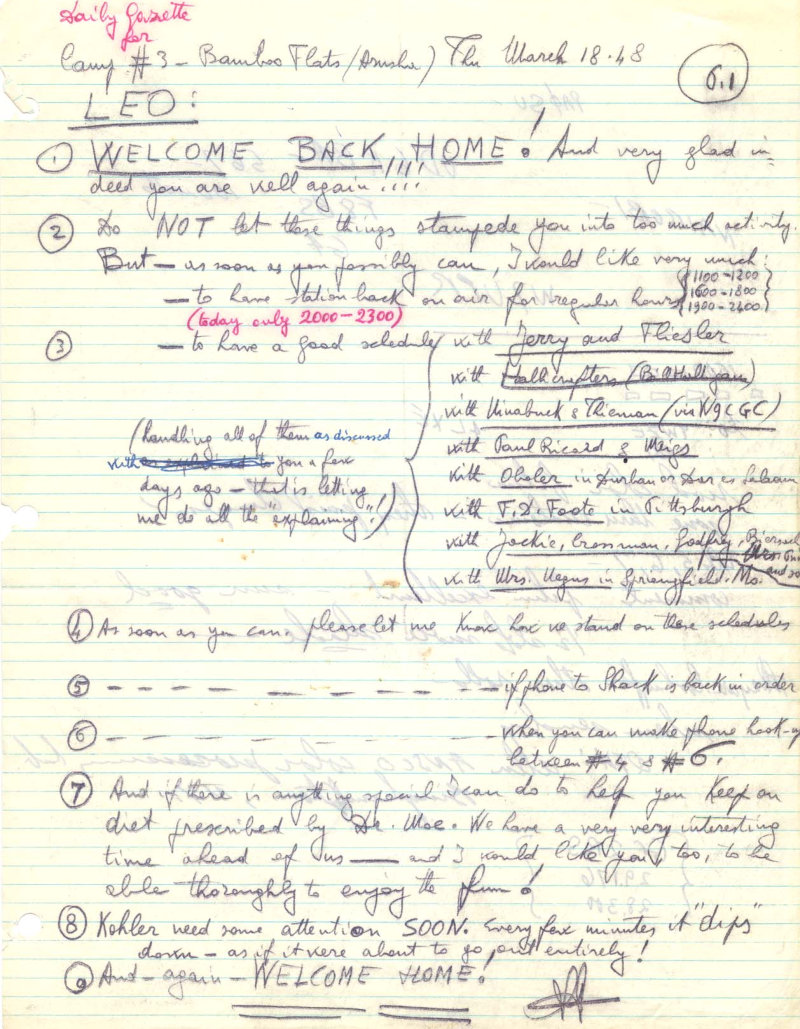 Daily Gazette
for
Camp #3 - Bamboo Flats (Arusha) Thu March 18.48
6.1
LEO:
① WELCOME BACK HOME! And very glad in=
deed you are well again !!!!
② Do NOT let these things stampede you into too much activity.
But — as soon as you possibly can, I would like very much:
— to have station back on air for regular hours { 1100-1200
1600-1800
1900-2400 }
(today only 2000-2300)
③ — to have a good schedule { with Jerry and Fliesler
with Hallicrafters (Bill Halligan)
with & Thieman (via W9CGC)
with Paul Ricard & Meigs
(handling all of them as discussed
with as explained to you a few
days ago — that is letting
me do all the "explaining"!)
with Oboler in Durban or Dar es Salaam
with F.D. Foote in Pittsburgh
with Jackie, Crossman, Godfrey,
Mrs.
and so
with Mrs. in Springfield. Mo.
④ As soon as you can. please let me know how we stand on these schedules
⑤ — — — — — — — — — — if phone to Shack is back in order
⑥ — — — — — — — — — — when you can make phone hook-up
between #4 & #6.
⑦ And if there is anything special I can do to help you keep on
diet prescribed by Dr. Moe. We have a very very interesting
time ahead of us — and I would like you, too, to be
able thoroughly to enjoy the fun!
⑧ Kohler need some attention SOON. Every few minutes it "dips"
down — as if it were about to go out entirely!
⑨ And - again - WELCOME HOME!